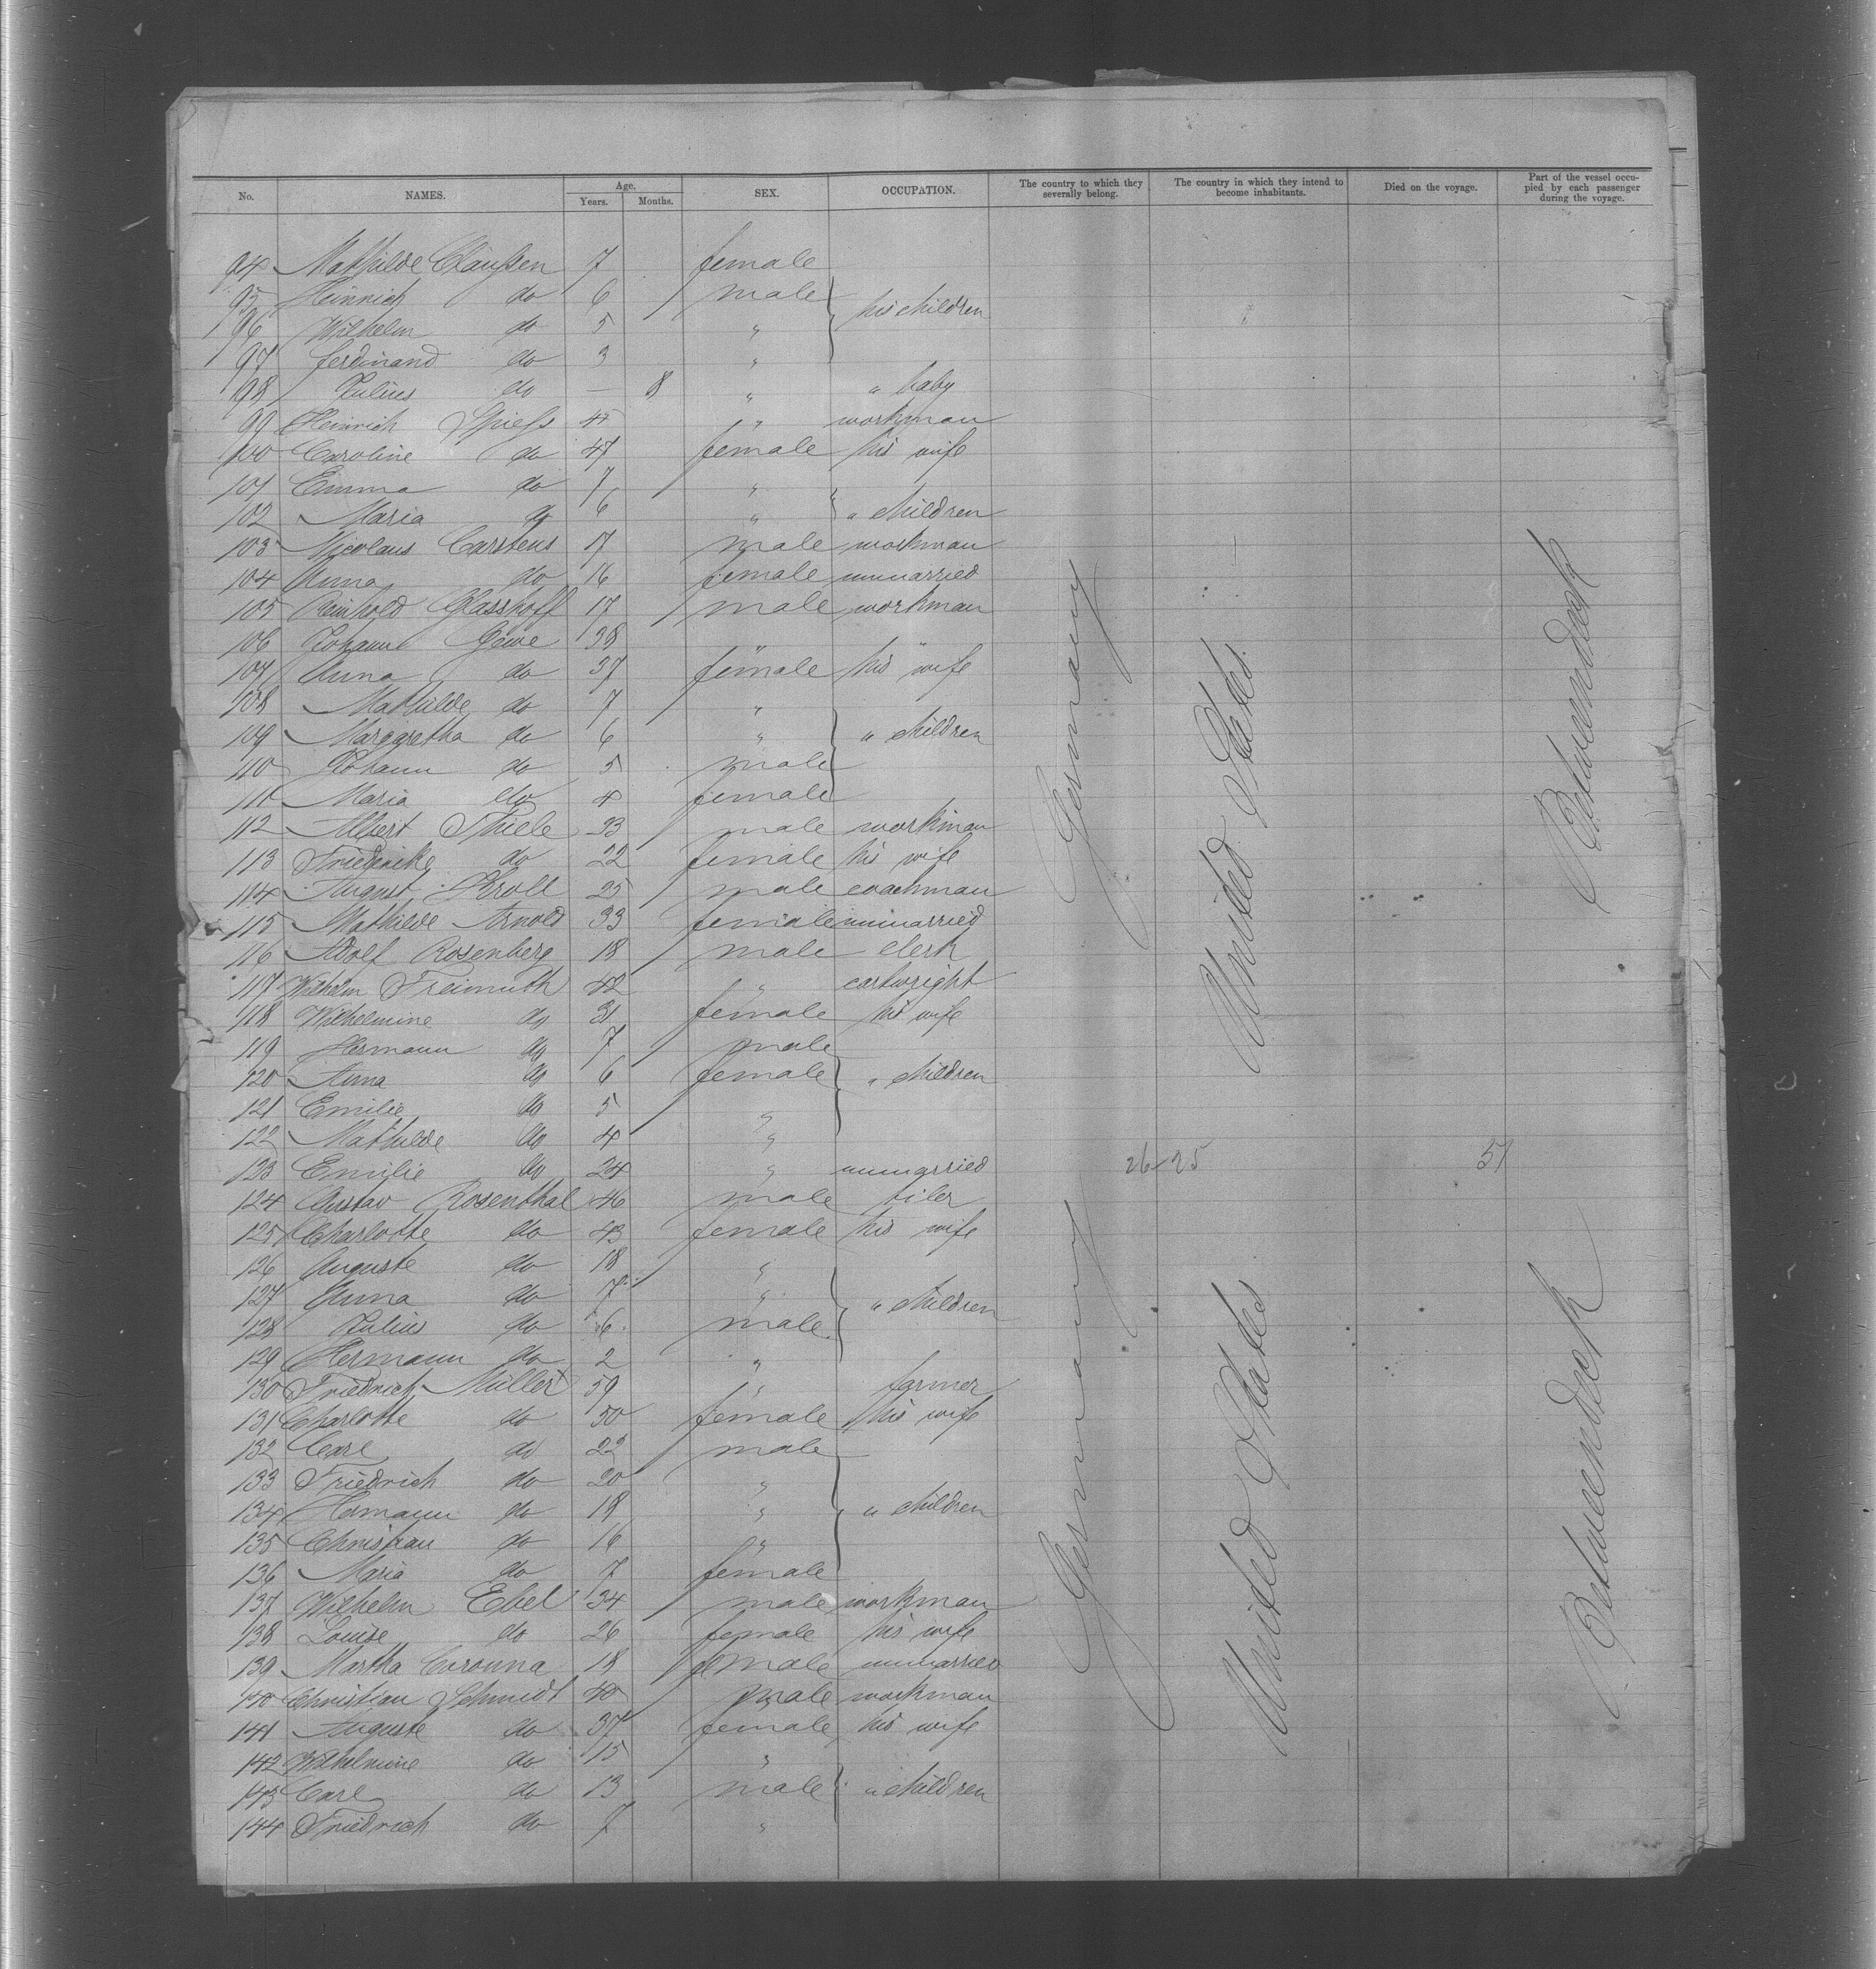 No. NAMES. Age. Years. Months. SEX. OCCUPATION. The country to which they severally belong. The country in which they intend to become inhabitants. Died on the voyage. Part of the vessel occupied by each passenger during the voyage.
94 Mathilde Claußen 7 female
95 Heinrich do 6 male
96 Wilhelm do 5 " his children
97 Ferdinand do 3 "
98 Julius do — 8 " " baby
99 Heinrich Spiess " workman
100 Caroline do 47 female his wife
101 Emma do 7 "
102 Maria do 6 " " children
103 Nicolaus Carstens 17 male workman
104 Anna do 16 female unmarried
105 Reinhold Glasshoff 17 male workman
106 Johann Gewe 38 " "
107 Anna do 37 female his wife
108 Mathilde do 7 "
109 Margaretha do 6 " " children
110 Johann do 5 male
111 Maria do 4 female
112 Albert Thiele 23 male workman
113 Friederike do 22 female his wife
114 August Kroll 25 male coachman
115 Mathilde Arnold 33 female unmarried
116 Adolf Rosenberg 18 male clerk
117 Wilhelm Freimuth 42 " cartwright
118 Wilhelmine do 31 female his wife
119 Hermann do 7 male
120 Anna do 6 female " children
121 Emilie do 5 "
122 Mathilde do 4 "
123 Emilie do 24 " unmarried
124 Gustav Rosenthal 46 male tiler
125 Charlotte do 43 female his wife
126 Auguste do 18 "
127 Anna do 7 " " children
128 Julius do 6 male
129 Hermann do 2 "
130 Friedrich Müller 59 " farmer
131 Charlotte do 50 female his wife
132 Carl do 22 male
133 Friedrich do 20 "
134 Hermann do 18 " " children
135 Christian do 16 "
136 Maria do 7 female
137 Wilhelm Ebel 34 male workman
138 Louise do 26 female his wife
139 Martha 18 female unmarried
140 Christian Schmidt 40 male workman
141 Auguste do 37 female his wife
142 Wilhelmine do 15 "
143 Carl do 13 male " children
144 Friedrich do 7 "
Germany
United States
Betweendeck
26-25
51
Germany
United States
Betweendeck